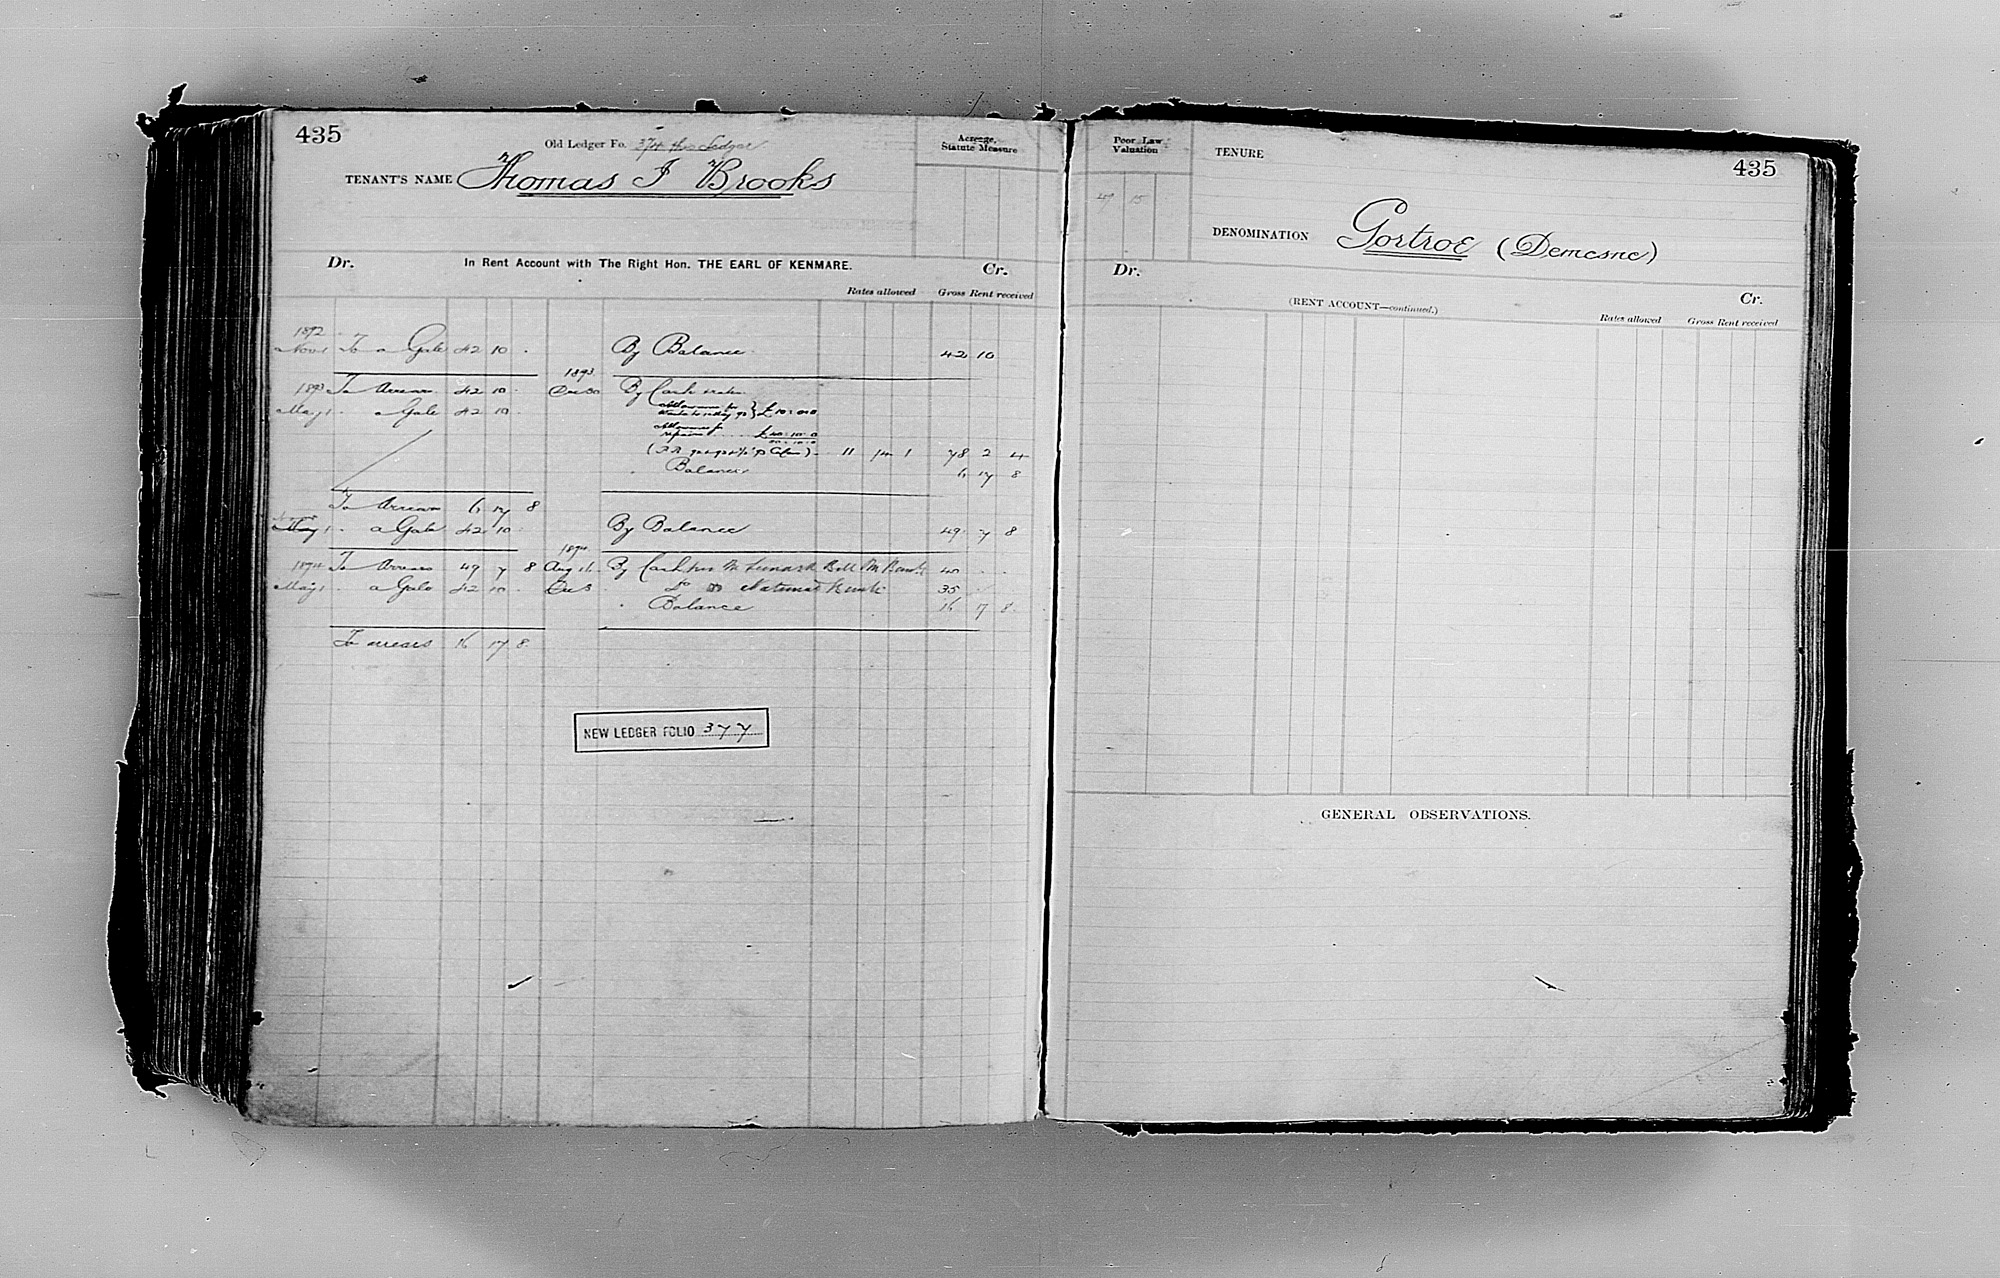 435
Old Ledger Fo. 374 this Ledger
Acreage,
Statute Measure
TENANT'S NAME Thomas J Brooks
Dr. In Rent Account with The Right Hon. THE EARL OF KENMARE. Cr.
Rates allowed Gross Rent received
1892
Nov 1 To a Gale 42 10 . By Balance 42 10
1893
1893 To Arrears 42 10 . Dec 30 By Cash
May 1 . a Gale 42 10 . Allowance for £10:0:0
Allowance for
repairs
11 14 1 78 2 4
Balance 6 17 8
To Arrears 6 17 8
May 1 . a Gale 42 10 . By Balance 49 7 8
1894
1894 To Arrears 49 7 8 Aug 16 By Cash 40 . .
May 1 . a Gale 42 10 . Dec 3 do National Bank 35 .
Balance 16 17 8
To arrears 16 17 8
NEW LEDGER FOLIO 377
Poor Law
Valuation
TENURE
435
49 15
DENOMINATION Gortroe (Demesne)
Dr.
(RENT ACCOUNT—continued.)
Cr.
Rates allowed Gross Rent received
GENERAL OBSERVATIONS.